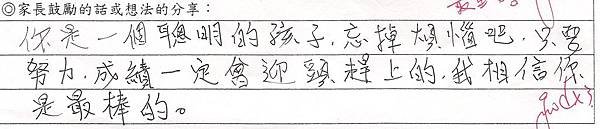 ◎家長鼓勵的話或想法的分享：
你是一個聰明的孩子，忘掉煩惱吧，只要
努力，成績一定會迎頭趕上的，我相信你
是最棒的。